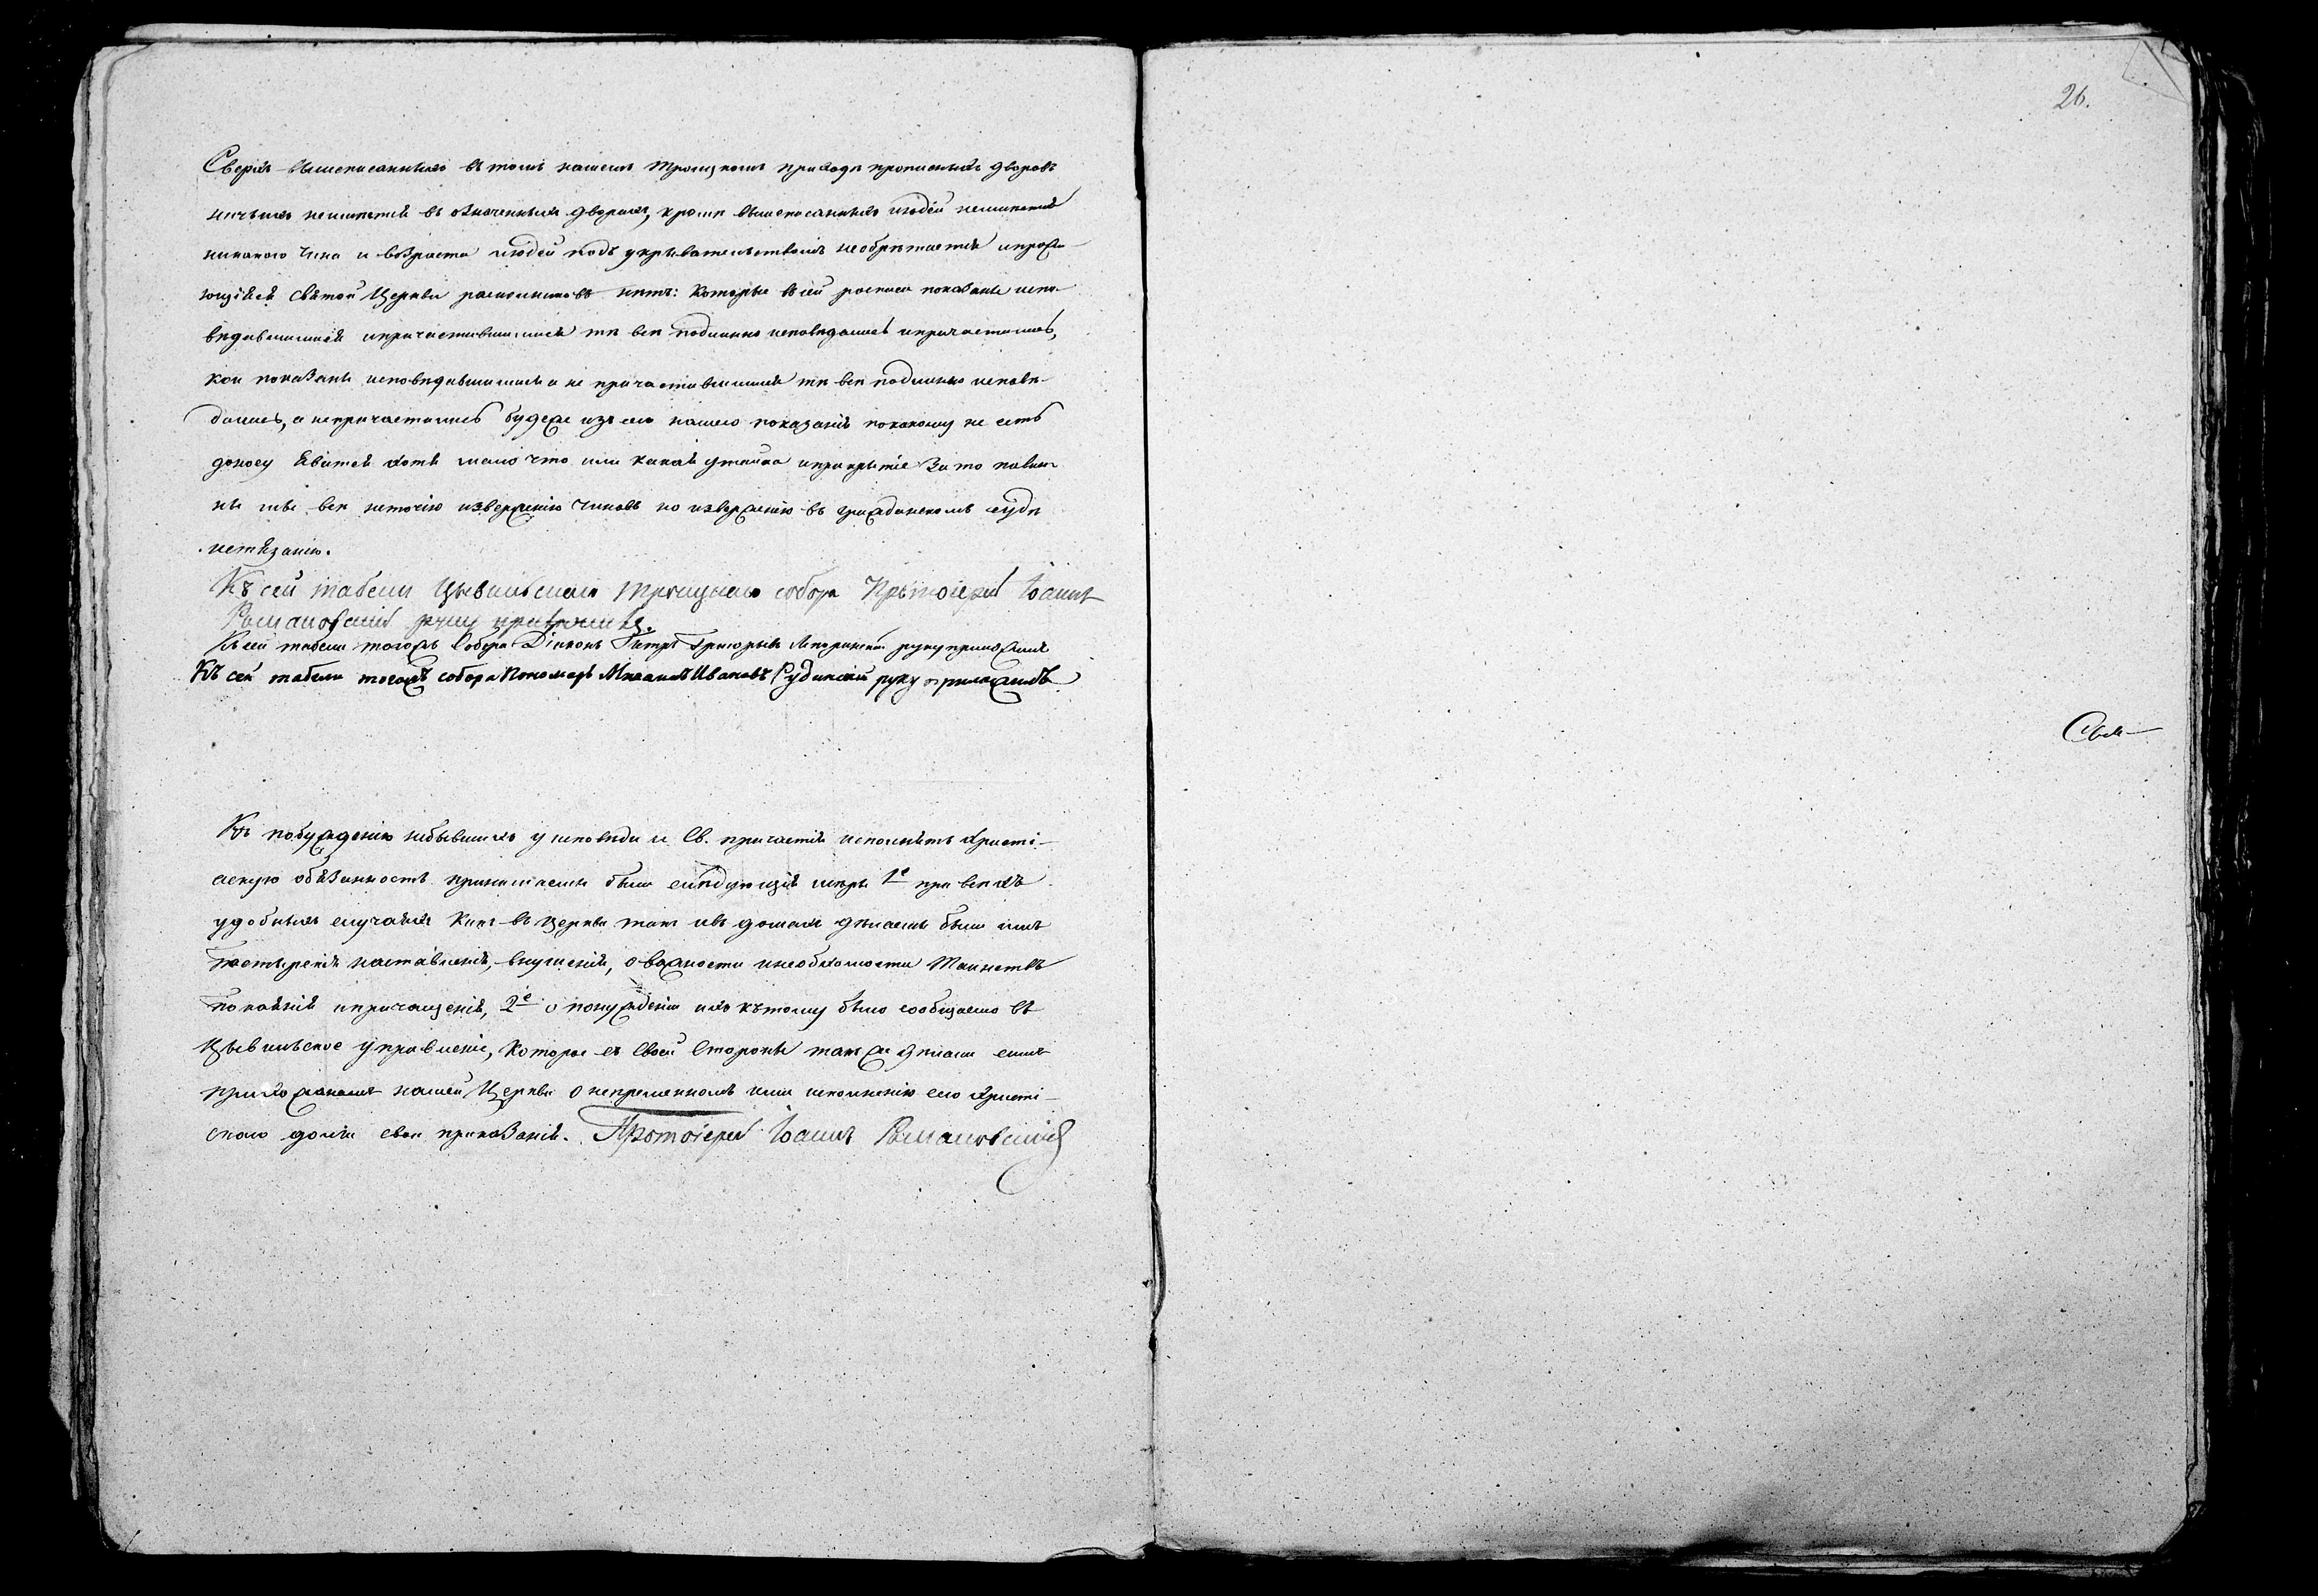 Сверхъ вышеписанныхъ въ томъ нашемъ Троицкомъ приходѣ прописныхъ дворовъ
ничьихъ не имѣется въ означенныхъ дворахъ, кромѣ вышеписанныхъ людей неимѣется
никакого чина и возраста людей подъ укрывательствомъ необрѣтается
Святой Церкви раскольниковъ нѣтъ: Которые въ сей росписи показаны испо-
вѣдавшимися ипричастившимися тѣ всѣ подлинно исповѣдались ипричастились,
кои показаны исповѣдавшимися а не причастившимися тѣ всѣ подлинно исповѣ-
дались, а непричастились будеже изъ сего нашего показанія покакому ни есть
доносу явится хотя мало что или какая утайка иприкрытіе за то повин-
ны мы всѣ неточію изверженію чиновъ но изверженію въ гражданскомъ судѣ
истязанію.
Къ сей табели Цывильскаго Троицкаго собора Протоіерей Іоаннъ
Романовскій руку приложилъ.
Къ сей табели тогожъ Собора Діаконъ Петръ Григорьевъ руку приложилъ
Къ сей табели тогожъ собора Пономарь Михаилъ Ивановъ Рудинскій руку приложилъ
Свя-
Къ побужденію небывшихъ у исповѣди и Св. причастія исполнять христі-
анскую обязанность принимаемы были слѣдующія мѣры 1е при всѣхъ
удобныхъ случаяхъ какъ въ Церкви такъ ивъ домахъ дѣлаемы были имъ
пастырскія наставленія, внушенія, о важности инеобходимости Таинствъ
покаянія ипричащенія, 2е о понужденіи ихъ кътому было сообщаемо въ
Цывильское управленіе, Которое съ Своей Стороны также дѣлали симъ
прихожанамъ нашей Церкви о непременномъ ими исполненію сего христі-
скаго долга свои приказанія. Протоіерей Іоаннъ Романовскій
26.